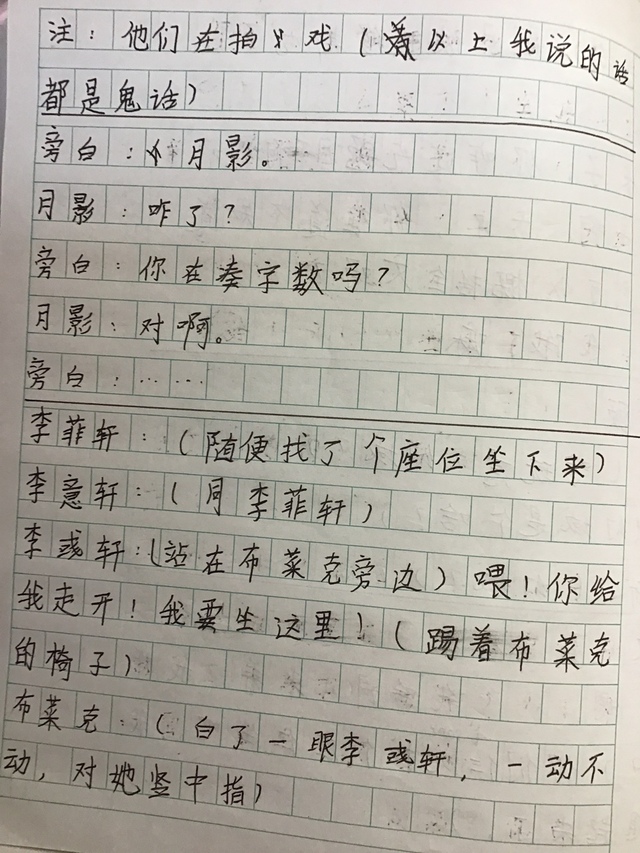 注：他们在拍戏（以上我说的话
都是鬼话）
旁白：月影。
月影：咋了？
旁白：你在凑字数吗？
月影：对啊。
旁白：……
李菲轩：（随便找了个座位坐下来）
李意轩：（同李菲轩）
李彧轩：（站在布莱克旁边）喂！你给
我走开！我要坐这里！（踢着布莱克
的椅子）
布莱克：（白了一眼李彧轩，一动不
动，对她竖中指）